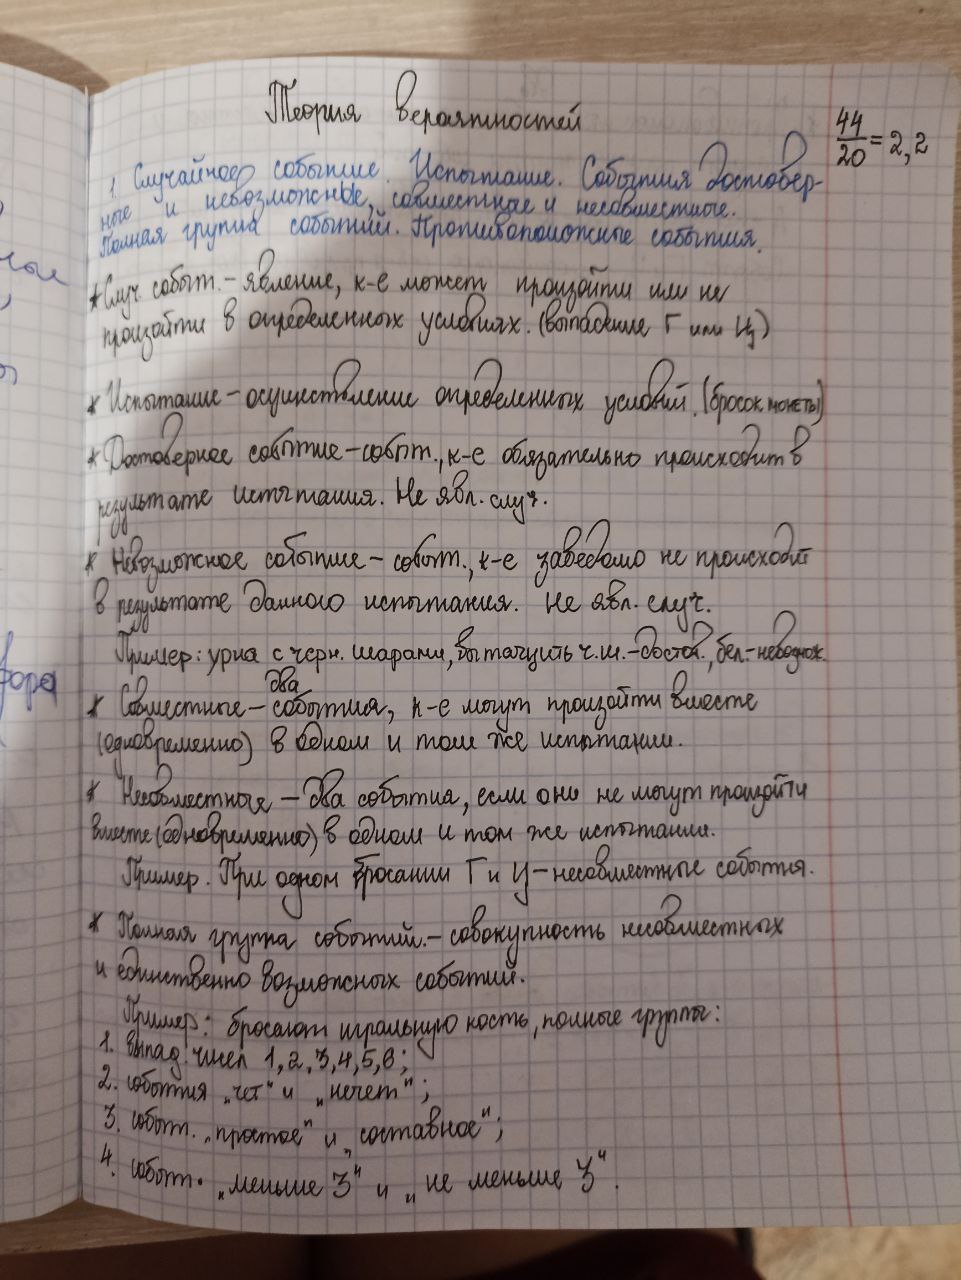 Теория вероятностей
44/20 = 2,2
1. Случайное событие. Испытание. События достовер-
ные и невозможные, совместные и несовместные.
Полная группа событий. Противоположные события.
* Случ. событ. – явление, к-е может произойти или не
произойти в определенных условиях. (выпадение Г или Ц)
* Испытание – осуществление определенных условий. (бросок монеты)
* Достоверное событие – событ., к-е обязательно происходит в
результате испытания. Не явл. случ.
* Невозможное событие – событ., к-е заведомо не происходит
в результате данного испытания. Не явл. случ.
Пример: урна с черн. шарами, вытащить ч.ш. – достов., бел. – невозмож.
два
* Совместные – события, к-е могут произойти вместе
(одновременно) в одном и том же испытании.
* Несовместные – два события, если они не могут произойти
вместе (одновременно) в одном и том же испытании.
Пример. При одном бросании Г и Ц – несовместные события.
* Полная группа событий. – совокупность несовместных
и единственно возможных событий.
Пример: бросают игральную кость, полные группы:
1. выпад. чисел 1, 2, 3, 4, 5, 6;
2. события „чет" и „нечет";
3. событ. „простое" и „составное";
4. событ. „меньше 3" и „не меньше 3".
ные
фора